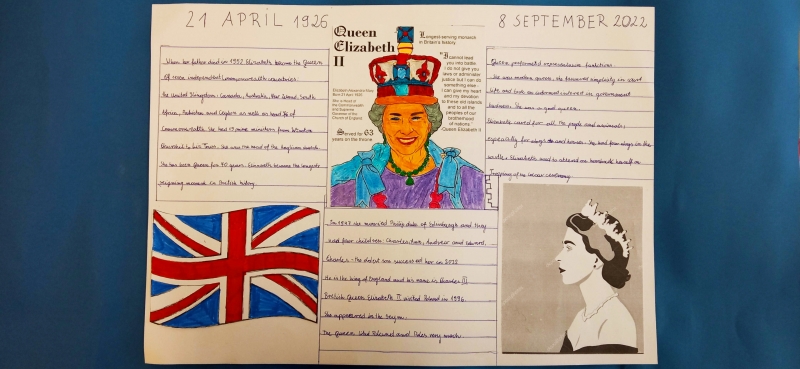 21 APRIL 1926
8 SEPTEMBER 2022
When her father died in 1952 Elizabeth became the Queen
of seven independent Commonwealth countries:
the United Kingdom, Canada, Australia, New Zealand, South
Africa, Pakistan and Ceylon as well as head of
Commonwealth. She had 15 prime ministers from Winston
Churchill to Liz Truss. She was the head of the Anglican church.
She has been Queen for 70 years. Elizabeth became the longest
reigning monarch in British history.
Queen Elizabeth II
Longest-serving monarch
in Britain's history
"I cannot lead
you into battle
I do not give you
laws or administer
justice but I can do
something else -
I can give my heart
and my devotion
to these old islands
and to all the
peoples of our
brotherhood
of nations."
Queen Elizabeth II
Elizabeth Alexandra Mary
Born 21 April 1926
She is Head of
the Commonwealth
and Supreme
Governor of the
Church of England
Served for 63
years on the throne
Queen performed representative functions.
She was modern queen. She favoured simplicity in court
life and took an informed interest in government
business. She was a good queen.
Elizabeth cared for all the people and animals,
especially for dogs and horses. She had four dogs in the
castle. Elizabeth used to attend on horseback herself in
Trooping of the colour ceremony.
In 1947 she married Philip duke of Edinburgh and they
had four children: Charles, Anne, Andrew and Edward.
Charles - the oldest son succeeded her in 2022
He is the king of England and his name is Charles III
British Queen Elizabeth II visited Poland in 1996.
She appeared in the Seym.
The Queen liked Poland and Poles very much.